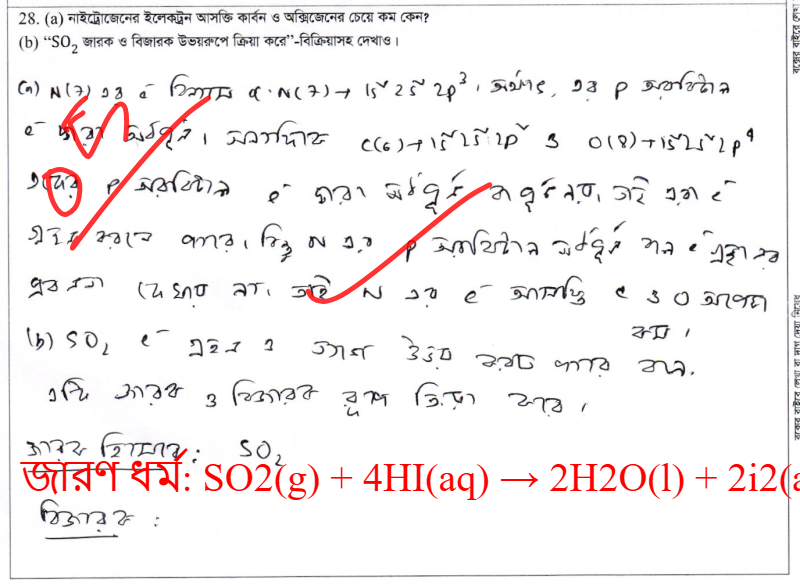 28. (a) নাইট্রোজেনের ইলেকট্রন আসক্তি কার্বন ও অক্সিজেনের চেয়ে কম কেন?
(b) “SO2 জারক ও বিজারক উভয়রুপে ক্রিয়া করে”-বিক্রিয়াসহ দেখাও।
(a) N(7) এর e⁻ বিন্যাস N(7)→ 1s² 2s² 2p³। অর্থাৎ, এর p অরবিটাল
e⁻ দ্বারা অর্ধপূর্ণ। অন্যদিকে C(6)→1s² 2s² 2p² ও O(8)→1s² 2s² 2p⁴
এদের p অরবিটাল e⁻ দ্বারা অর্ধপূর্ণ বা পূর্ণ নয়, তাই এরা e⁻
গ্রহন করতে পারে। কিন্তু N এর p অরবিটাল অর্ধপূর্ণ বলে e⁻ গ্রহনের
প্রবনতা দেখায় না। তাই N এর e⁻ আসক্তি C ও O অপেক্ষা
কম।
(b) SO2 e⁻ গ্রহন ও ত্যাগ উভয় করতে পারে বলে,
এটি জারক ও বিজারক রূপে ক্রিয়া করে।
জারক হিসাবে: SO2
জারণ ধর্ম: SO2(g) + 4HI(aq) → 2H2O(l) + 2i2(a
বিজারক :
05